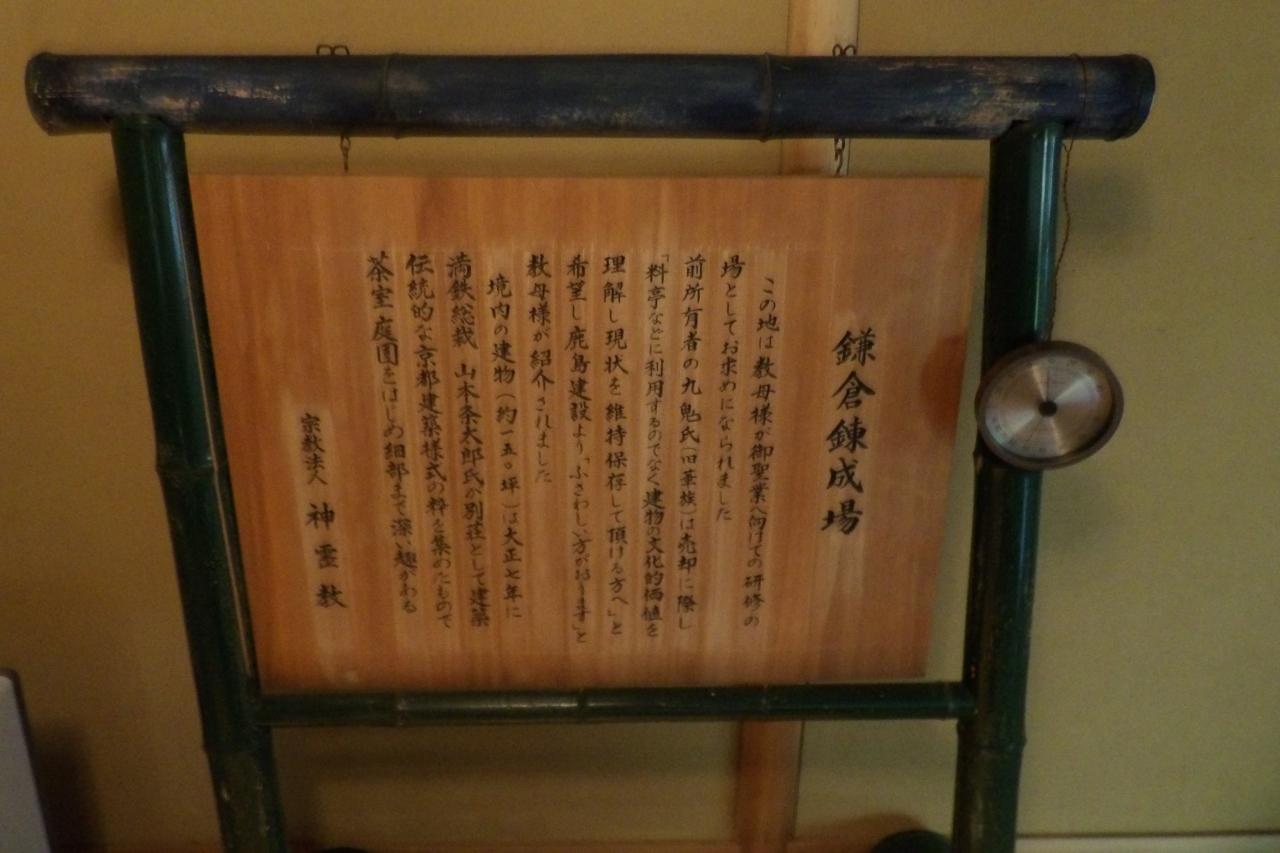 鎌倉錬成場
この地は教母様が御聖業へ向けての研修の
場としてお求めになられました
前所有者の九鬼氏(旧華族)は売却に際し
「料亭などに利用するのでなく建物の文化的価値を
理解し現状を維持保存して頂ける方へ」と
希望し鹿島建設より「ふさわしい方がおります」と
教母様が紹介されました
境内の建物(約一五〇坪)は大正七年に
満鉄総裁 山本条太郎氏が別荘として建築
伝統的な京都建築様式の粋を集めたもので
茶室 庭園をはじめ細部まで深い趣がある
宗教法人 神霊教